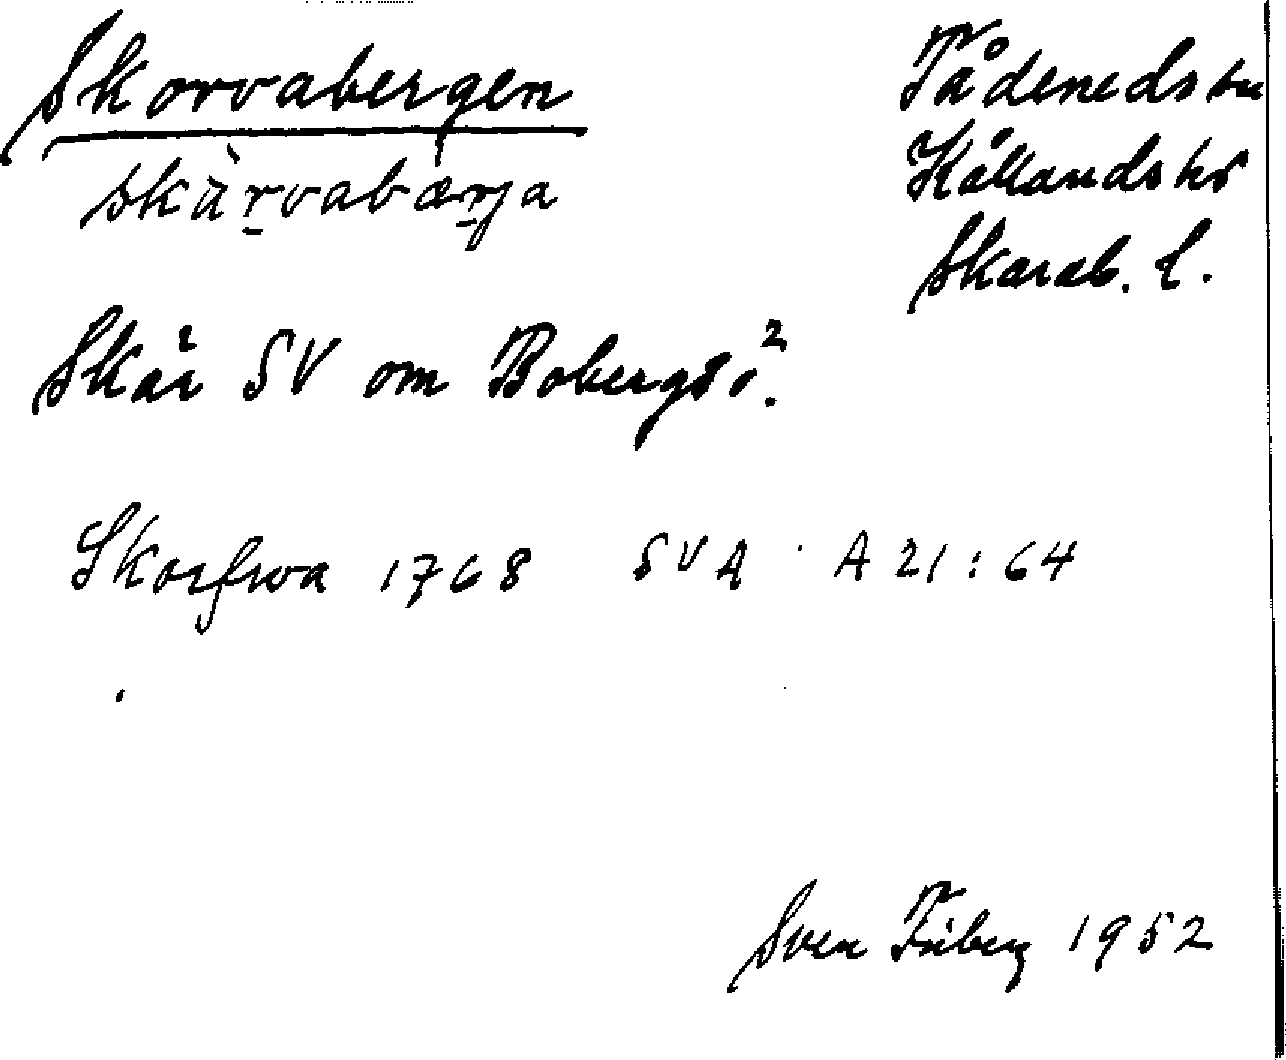 Skorvabergen
skàrvabærja
Tådeneds sn
Kållands hd
Skarab. l.
Skär SV om Bobergsö?
Skorfwa 1768 SVA A 21:64
Sven Friberg 1952